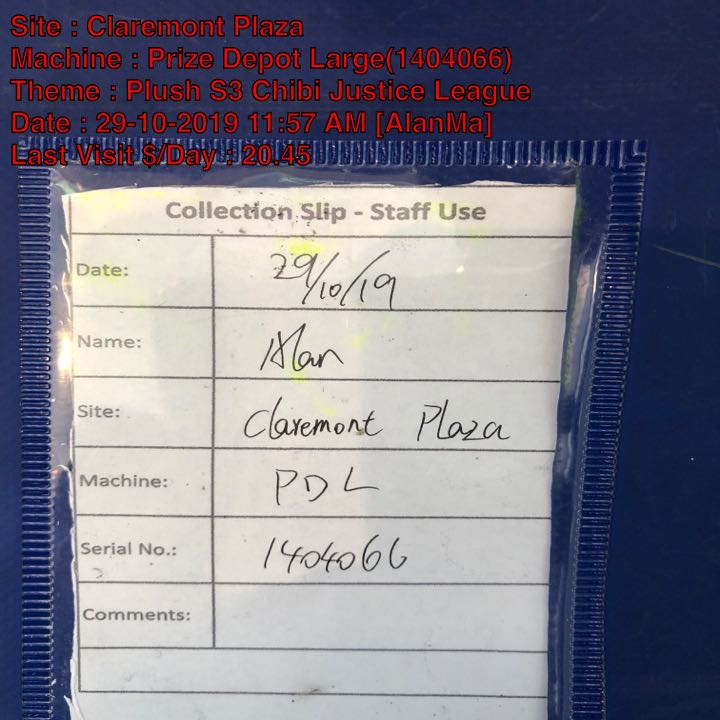 Site : Claremont Plaza
Machine : Prize Depot Large(1404066)
Theme : Plush S3 Chibi Justice League
Date : 29-10-2019 11:57 AM [AlanMa]
Last Visit $/Day : 20.45
Collection Slip - Staff Use
Date: 29/10/19
Name: Alan
Site: Claremont Plaza
Machine: PDL
Serial No.: 1404066
Comments: